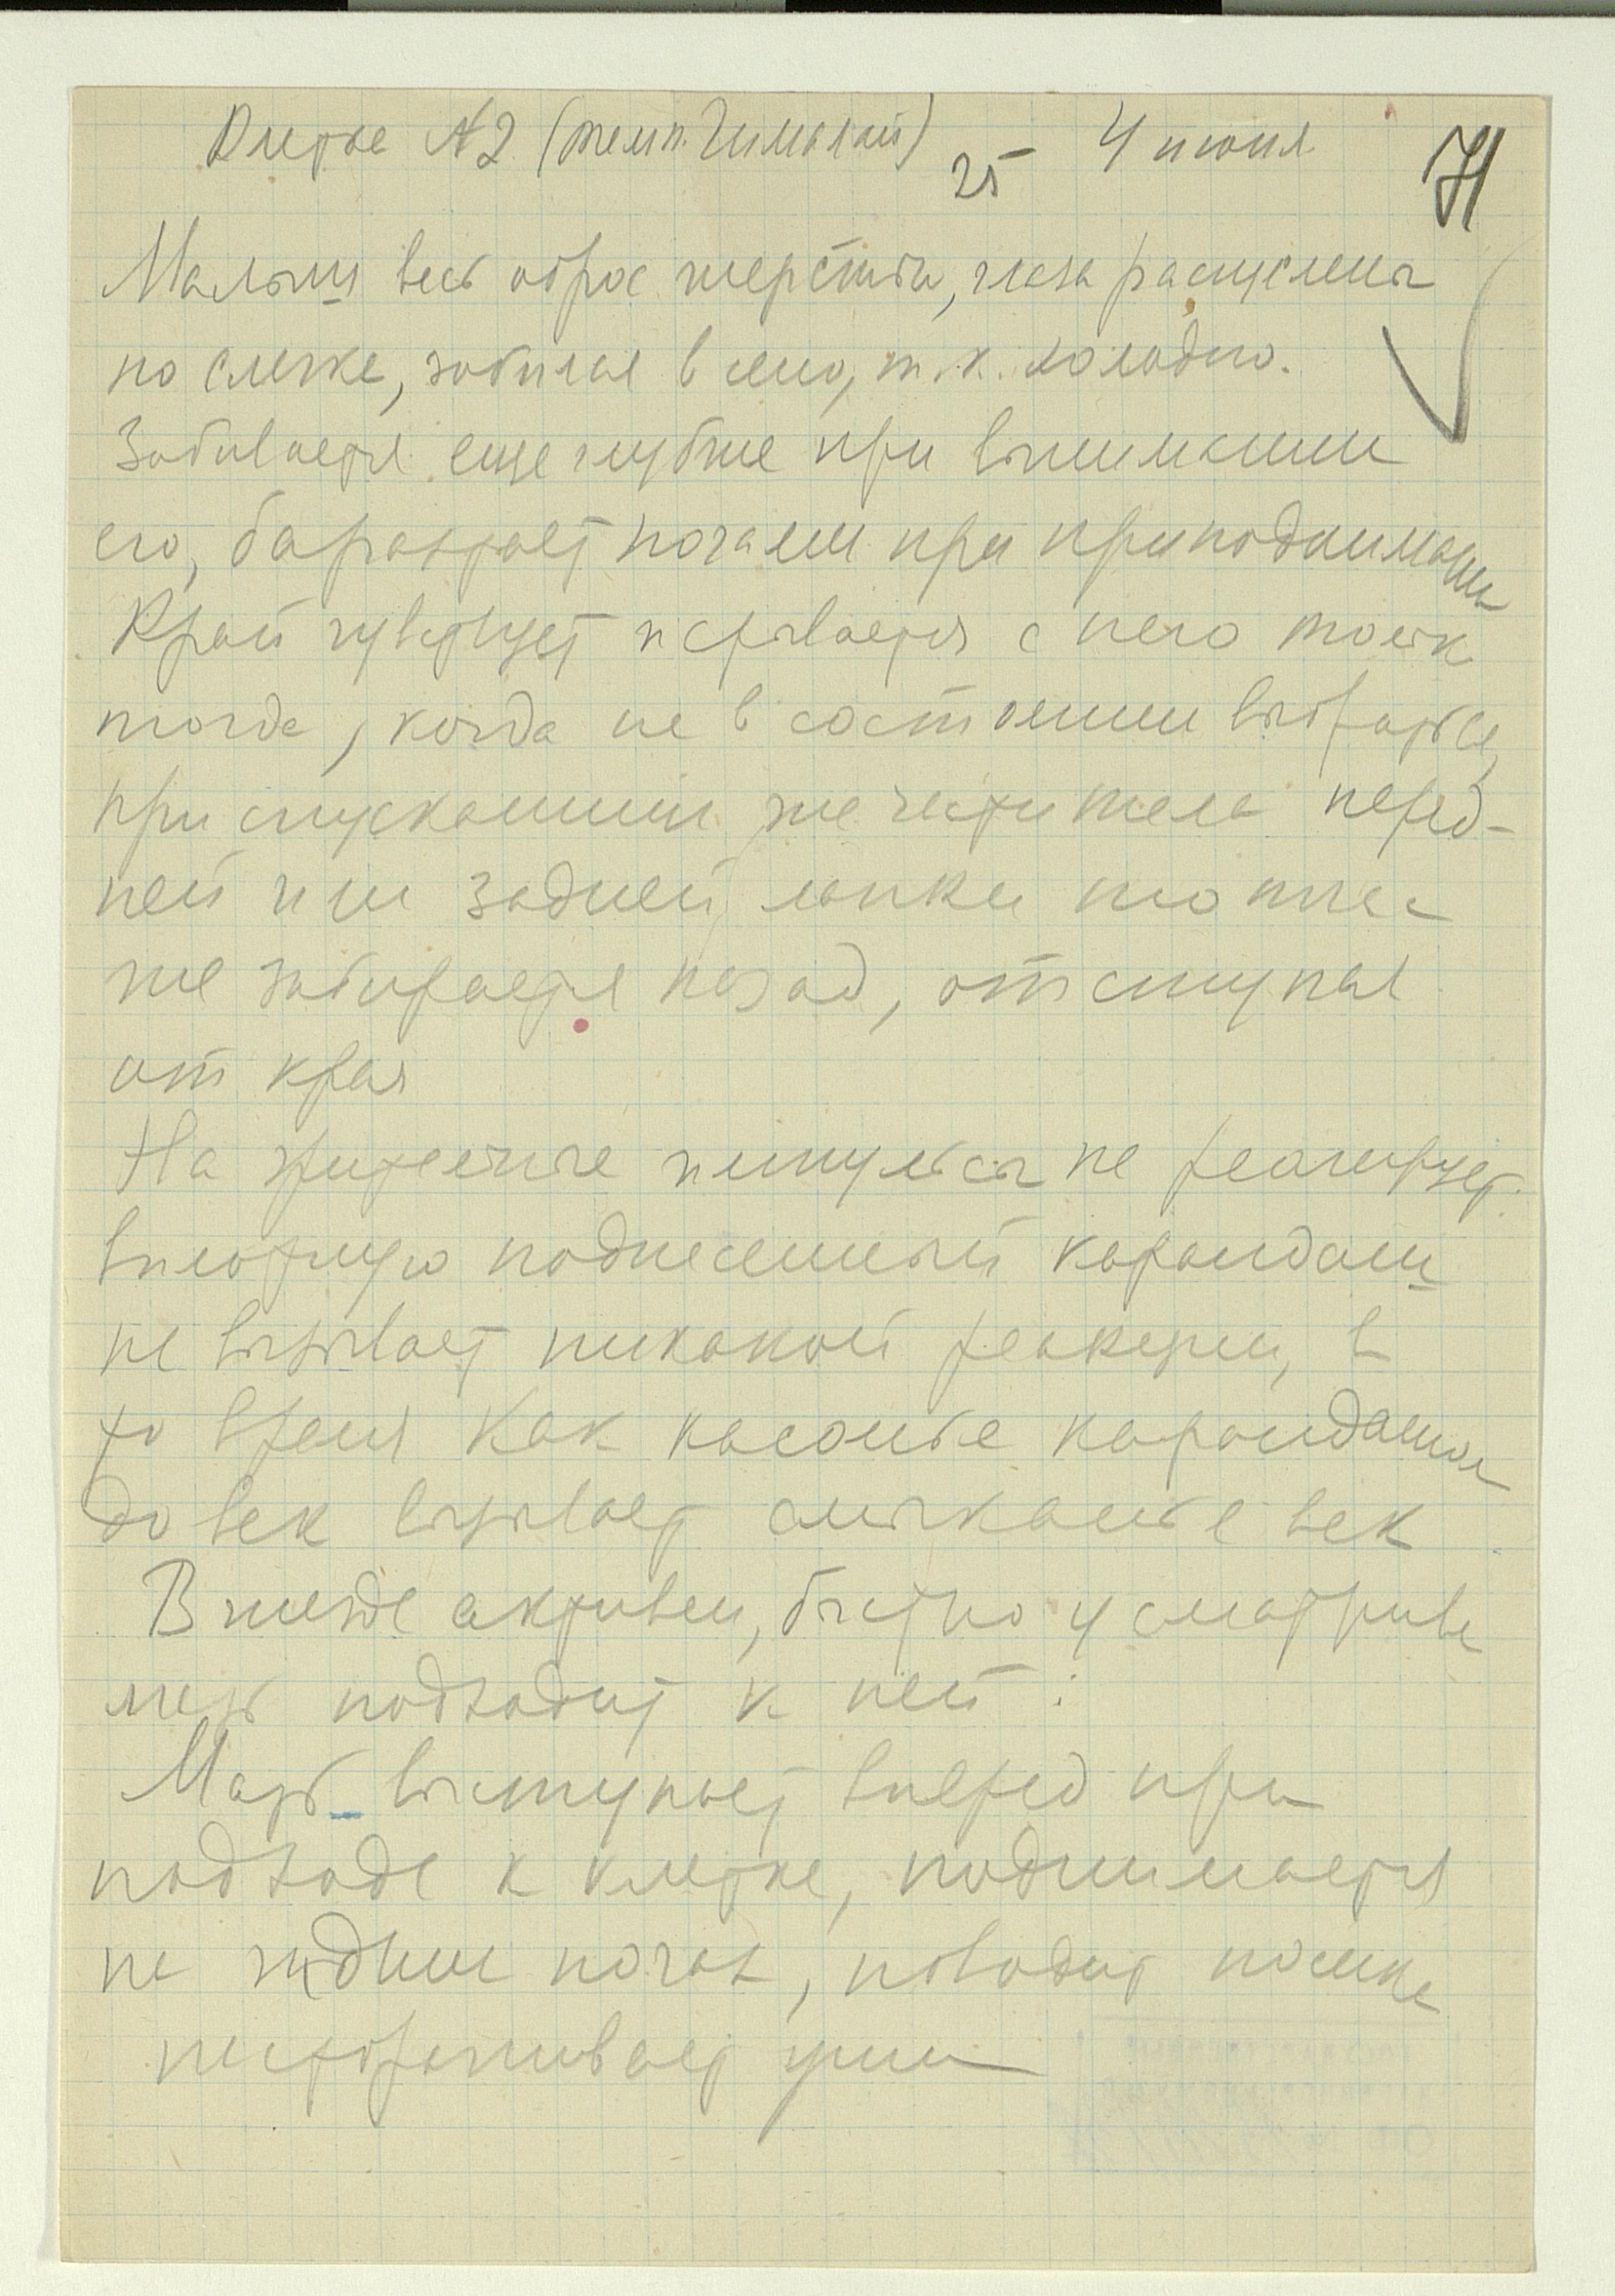 Клетка №2 (темп. Гималай) 4 июня
25
71
Малыш весь оброс шерстью, глаза
по слепке, забился в сено, т.к. холодно.
Забивается еще глубже при вынимании
его, барахтает ногами при приподнимании
Край чувствует и срывается с него только
тогда, когда не в состоянии выбраться,
при спускании же части тела перед-
ней или задней лапки тотчас
же забирается назад, отступая
от края
На зрительные импульсы не реагирует.
вплотную поднесенный карандаш
не вызывает никакой реакции, в
то время как касание карандашом
до век вызывает смыкание век
В гнезде активен, быстро усматрива
мать подходит к ней.
Мать выступает вперед при
подходе к клетке, поднимается
на задних ногах, поводит носика
настораживает уши